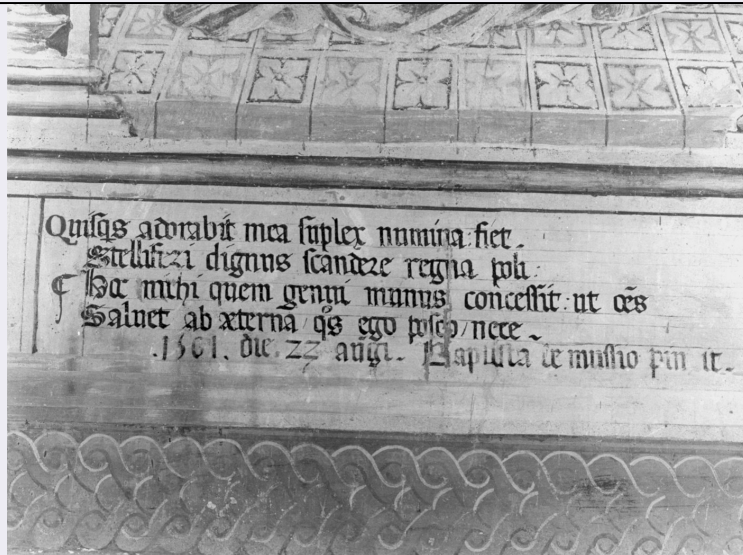 Quisq̃s adorabit mea suplex numina: fiet.
Stelliferi dignus scandere regna poli:
¶ Hoc mihi quem genui munus concessit: ut oẽs
Saluet ab æterna / q̊s ego posco / nece.
.1501. die. 22 augi. Baptista de mussio pin it.